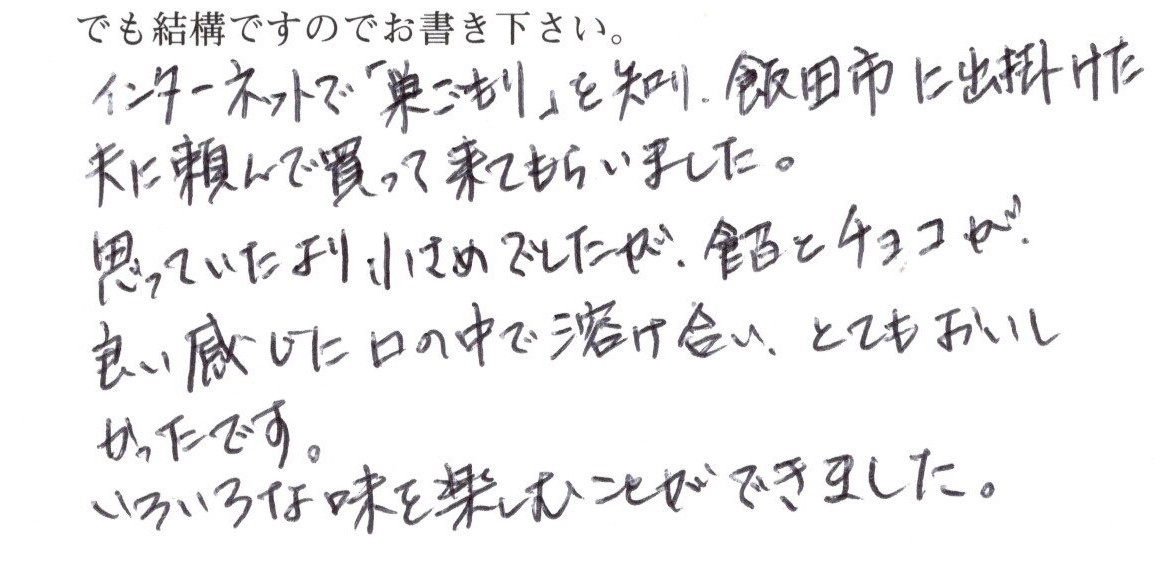 でも結構ですのでお書き下さい。
インターネットで「巣ごもり」を知り、飯田市に出掛けた
夫に頼んで買って来てもらいました。
思っていたより小さめでしたが、餡とチョコが、
良い感じに口の中で溶け合い、とてもおいし
かったです。
いろいろな味を楽しむことができました。